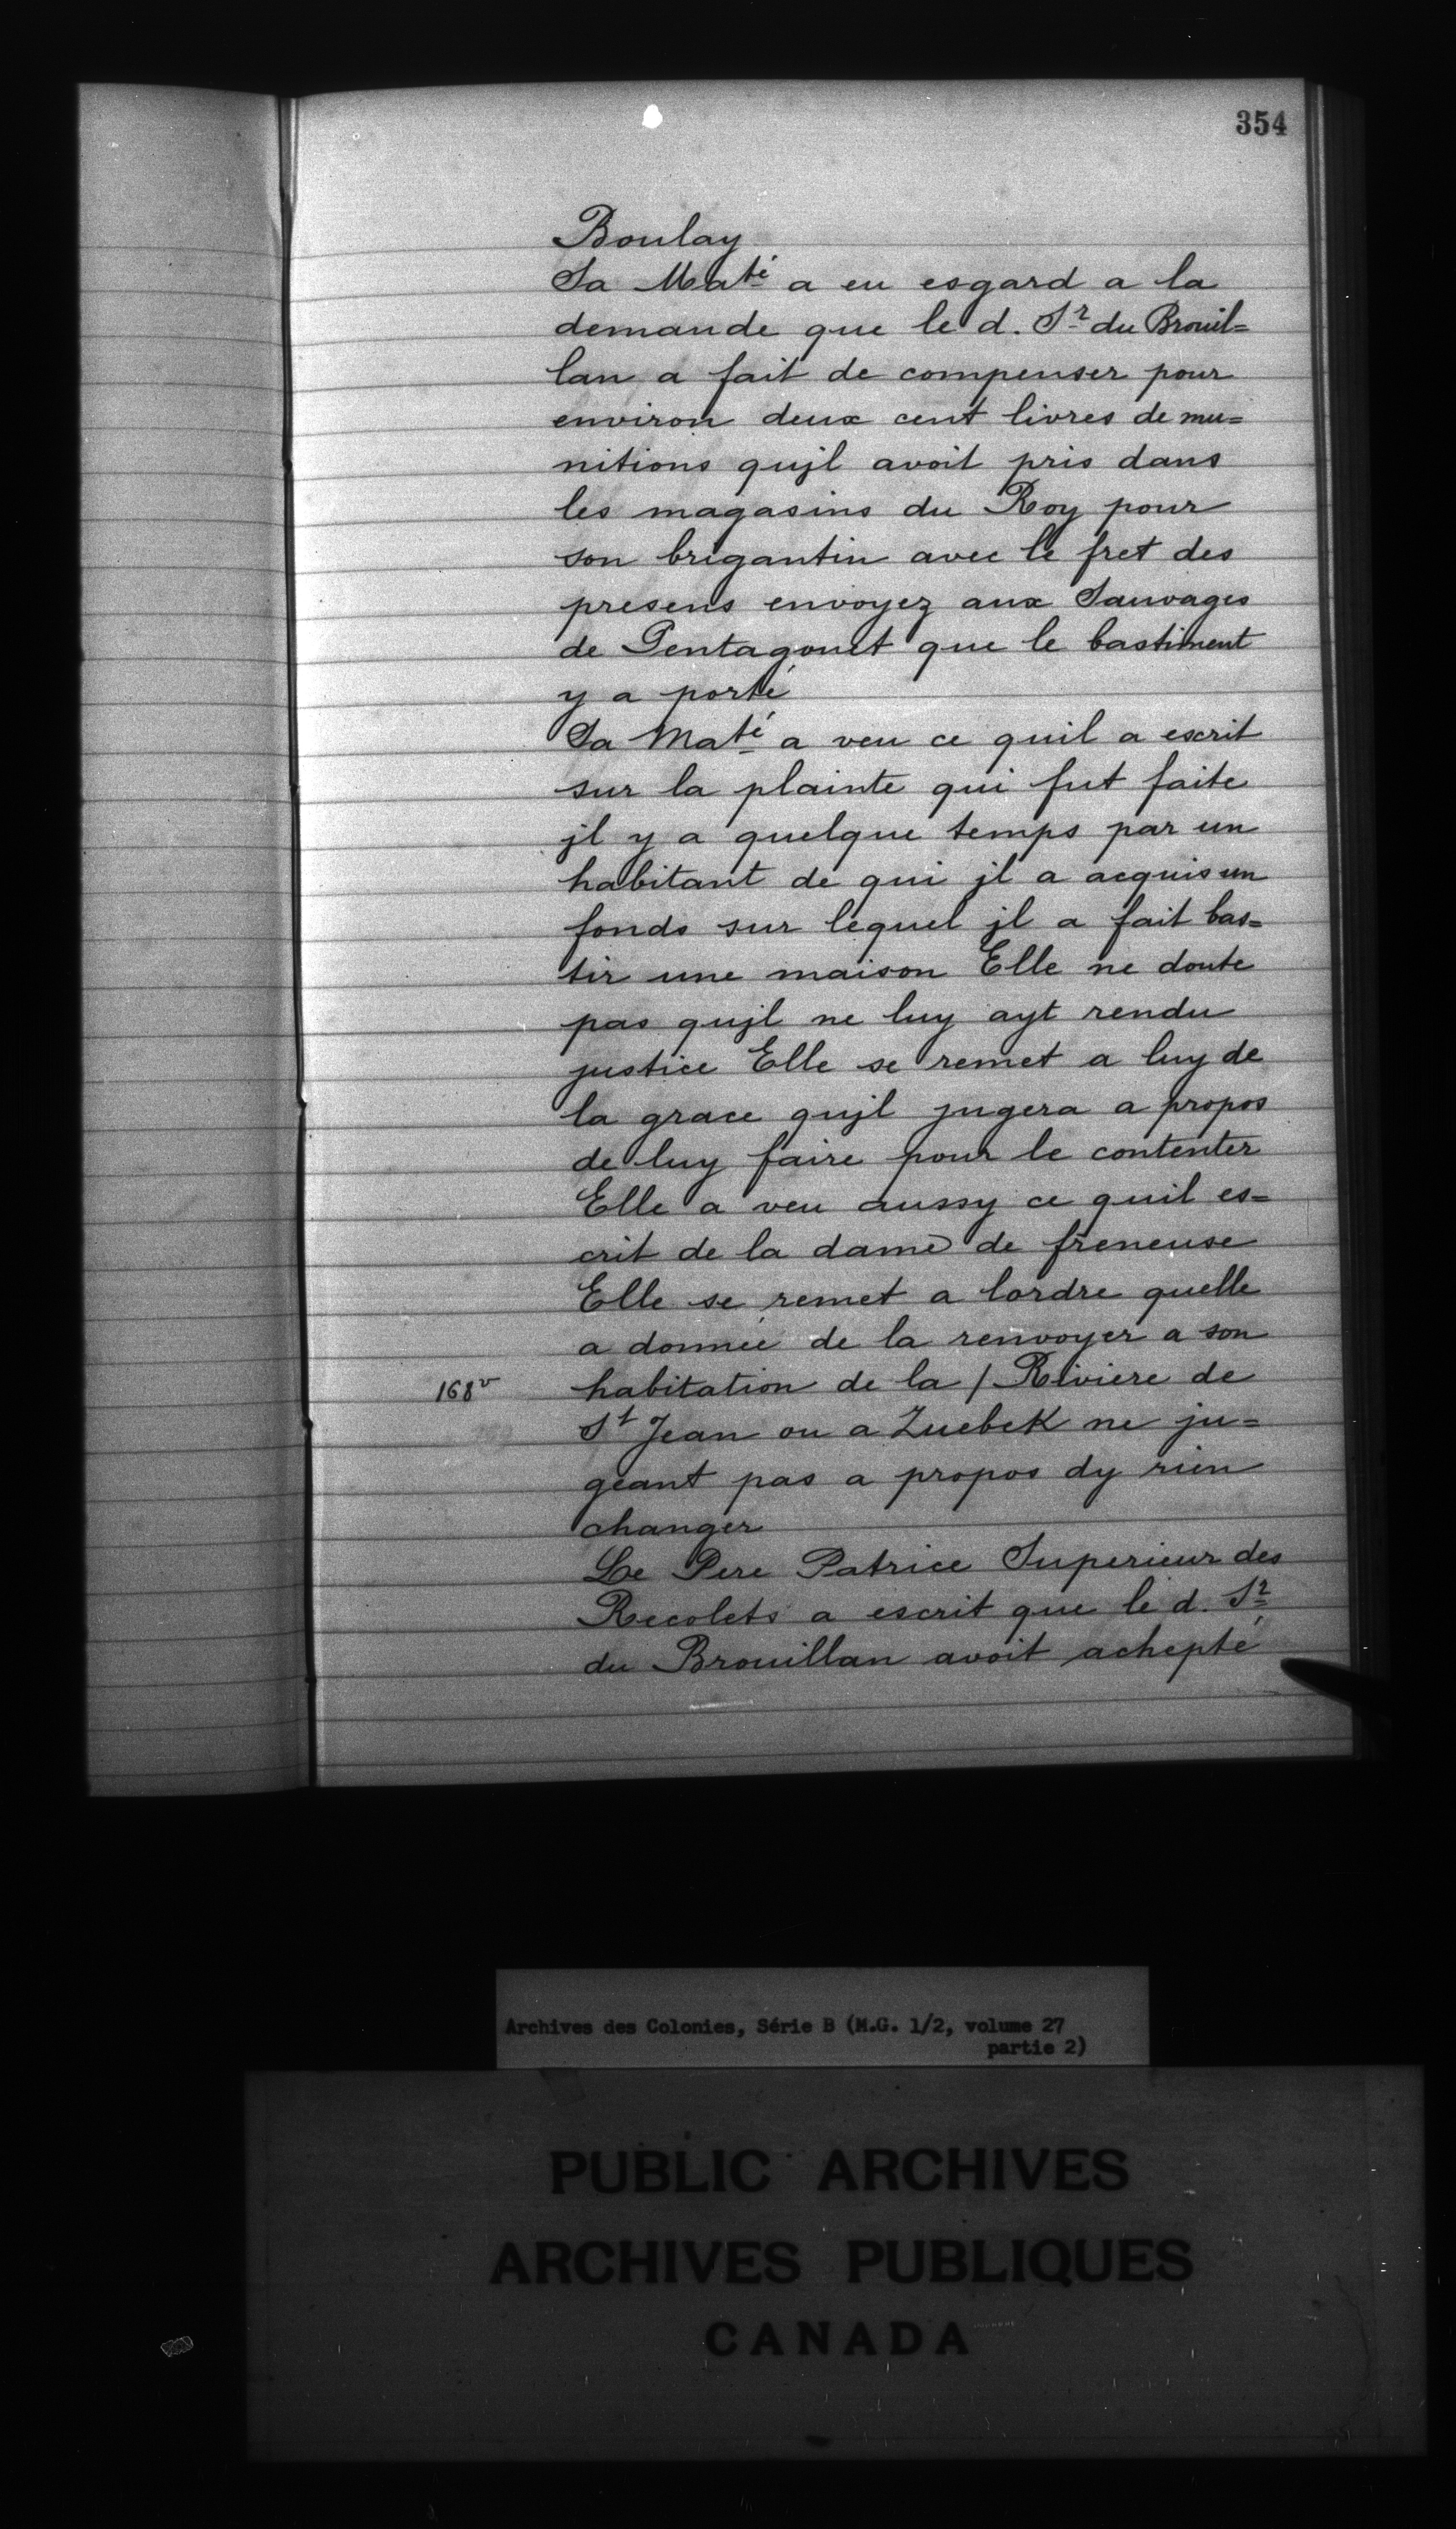 354
Boulay
Sa Maté a eu esgard a la
demande que le d. Sr du Brouil=
lan a fait de compenser pour
environ deux cent livres de mu=
nitions qujl avoit pris dans
les magasins du Roy pour
son brigantin avec le fret des
presens envoyez aux Sauvages
de Pentagouet que le bastiment
y a porté
Sa Maté a veu ce quil a escrit
sur la plainte qui fut faite
jl y a quelque temps par un
habitant de qui jl a acquis un
fonds sur lequel jl a fait bas=
tir une maison Elle ne doute
pas qujl ne luy ayt rendu
justice Elle se remet a luy de
la grace qujl jugera a propos
de luy faire pour le contenter
Elle a veu aussy ce quil es=
crit de la dame de freneuse
Elle se remet a lordre quelle
a donnée de la renvoyer a son
168v habitation de la / Riviere de
St Jean ou a Quebek ne ju=
geant pas a propos dy rien
changer
Le Pere Patrice Superieur des
Recolets a escrit que le d. Sr
du Brouillan avoit achepté
Archives des Colonies, Série B (M.G. 1/2, volume 27
partie 2)
PUBLIC ARCHIVES
ARCHIVES PUBLIQUES
CANADA